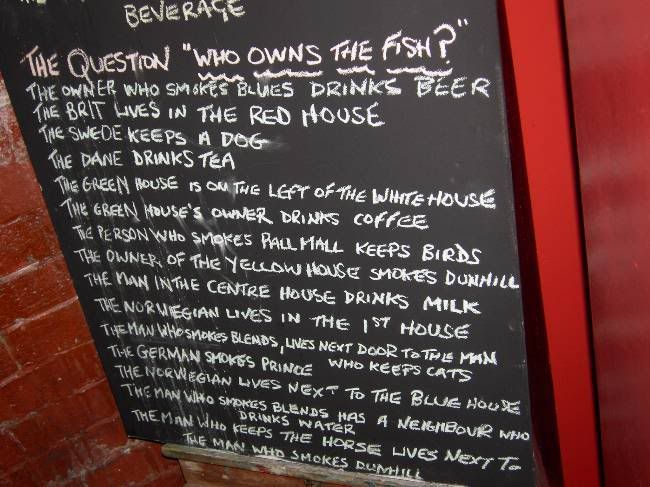 BEVERAGE
THE QUESTION "WHO OWNS THE FISH?"
THE OWNER WHO SMOKES BLUES DRINKS BEER
THE BRIT LIVES IN THE RED HOUSE
THE SWEDE KEEPS A DOG
THE DANE DRINKS TEA
THE GREEN HOUSE IS ON THE LEFT OF THE WHITE HOUSE
THE GREEN HOUSE'S OWNER DRINKS COFFEE
THE PERSON WHO SMOKES PALL MALL KEEPS BIRDS
THE OWNER OF THE YELLOW HOUSE SMOKES DUNHILL
THE MAN IN THE CENTRE HOUSE DRINKS MILK
THE NORWEGIAN LIVES IN THE 1ST HOUSE
THE MAN WHO SMOKES BLENDS, LIVES NEXT DOOR TO THE MAN
WHO KEEPS CATS
THE GERMAN SMOKES PRINCE
THE NORWEGIAN LIVES NEXT TO THE BLUE HOUSE
THE MAN WHO SMOKES BLENDS HAS A NEIGHBOUR WHO
DRINKS WATER
THE MAN WHO KEEPS THE HORSE LIVES NEXT TO
THE MAN WHO SMOKES DUNHILL